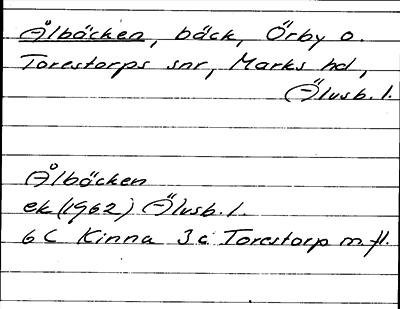 Ålbäcken, bäck, Örby o.
Torestorps snr, Marks hd,
Älvsb. l.
Ålbäcken
ek (1962) Älvsb. l.
6 C Kinna 3 c Torestorp m.fl.